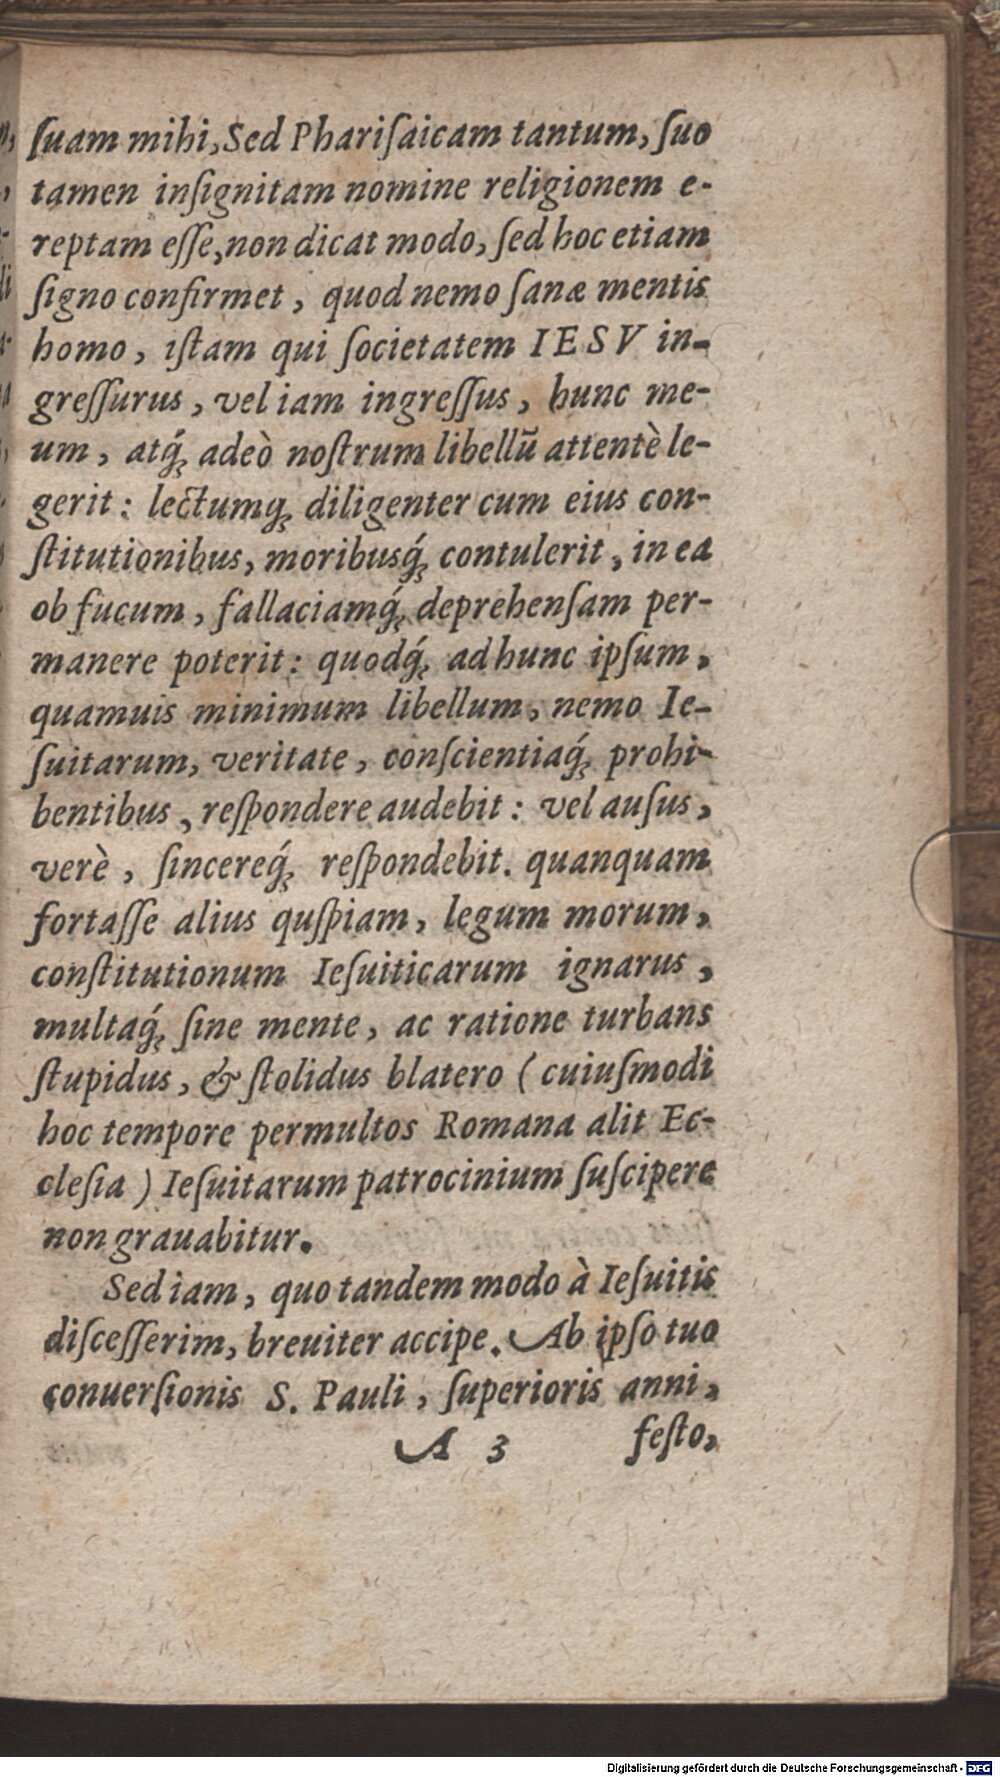 ſuam mihi, Sed Phariſaicam tantum, ſuo
tamen inſignitam nomine religionem e-
reptam eſſe, non dicat modo, ſed hoc etiam
ſigno confirmet, quod nemo ſanæ mentis
homo, iſtam qui ſocietatem IESV in-
greſſurus, vel iam ingreſſus, hunc me-
um, atq́ꝫ adeò noſtrum libellũ attentè le-
gerit: lectumqꝫ diligenter cum eius con-
ſtitutionibus, moribusq́ꝫ contulerit, in ea
ob fucum, fallaciamq́ꝫ deprehenſam per-
manere poterit: quodq́ꝫ ad hunc ipſum,
quamuis minimum libellum, nemo Ie-
ſuitarum, veritate, conſcientiaq́ꝫ prohi-
bentibus, reſpondere audebit: vel auſus,
verè, ſincereq́ꝫ reſpondebit. quanquam
fortaſſe alius quſpiam, legum morum,
conſtitutionum Ieſuiticarum ignarus,
multaq́ꝫ ſine mente, ac ratione turbans
ſtupidus, & ſtolidus blatero (cuiuſmodi
hoc tempore permultos Romana alit Ec-
cleſia) Ieſuitarum patrocinium ſuſcipere
non grauabitur.
Sed iam, quo tandem modo à Ieſuitis
diſceſſerim, breuiter accipe. Ab ipſo tuo
conuerſionis S. Pauli, ſuperioris anni,
A 3 feſto,
Digitalisierung gefördert durch die Deutsche Forschungsgemeinschaft - DFG